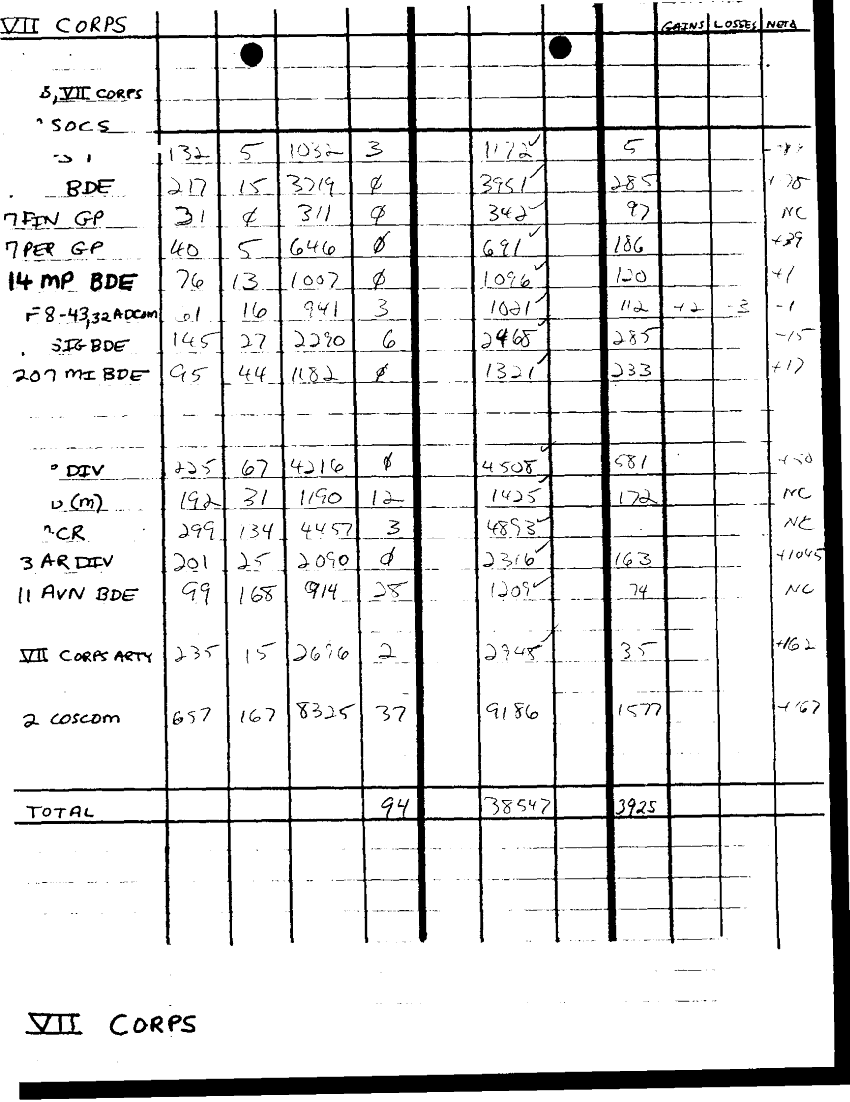 VII CORPS GAINS LOSSES NOTA
VII CORPS
SOCS
132 5 1032 3 1172✓ 5
BDE 217 15 3719 ∅ 3951✓ 285
7 FIN GP 31 ∅ 311 ∅ 342✓ 97 NC
7 PER GP 40 5 646 ∅ 691✓ 186 +39
14 MP BDE 76 13 1007 ∅ 1096✓ 120 +1
F 8-43, 32 ADCOM 61 16 941 3 1021✓ 112 +2 -3 -1
SIG BDE 145 27 2290 6 2468✓ 285 -15
207 MI BDE 95 44 1182 ∅ 1321✓ 233 +17
DIV 225 67 4216 ∅ 4508✓ 581
(M) 192 31 1190 12 1425✓ 172 NC
CR 299 134 4457 3 4893✓ NC
3 AR DIV 201 25 2090 ∅ 2316✓ 163 +1045
11 AVN BDE 99 168 914 28 1209✓ 74 NC
VII CORPS ARTY 235 15 2696 2 2948✓ 35 +162
2 COSCOM 657 167 8325 37 9186 1577 +167
TOTAL 94 38547 3925
VII CORPS